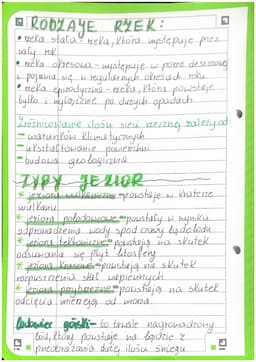 RODZAJE RZEK:
• rzeka stała - rzeka, która występuje przez
cały rok
• rzeka okresowa - występuje w porze deszczowej
i pojawia się w regularnych okresach roku
• rzeka epizodyczna - rzeka, która powstaje
tylko i wyłącznie po dużych opadach
Zróżnicowanie ilości sieci rzecznej zależy od:
- warunków klimatycznych
- ukształtowanie powierzchni
- budowa geologiczna
TYPY JEZIOR
* jeziora wulkaniczne - powstaje w kraterze
wulkanu
* jeziora polodowcowe - powstały w wyniku
odprowadzenia wody spod czoła lądolodu
* jeziora tektoniczne - powstają na skutek
odsunania się płyt litosfery
* jeziora krasowe - powstają na skutek
rozpuszczenia skał wapiennych
* jeziora przybrzeżne - powstają na skutek
odcięcia mierzeją od morza
lodowiec górski - to trwale nagromadzony
lód, który powstaje na lądzie z
przeobrażania dużej ilości śniegu